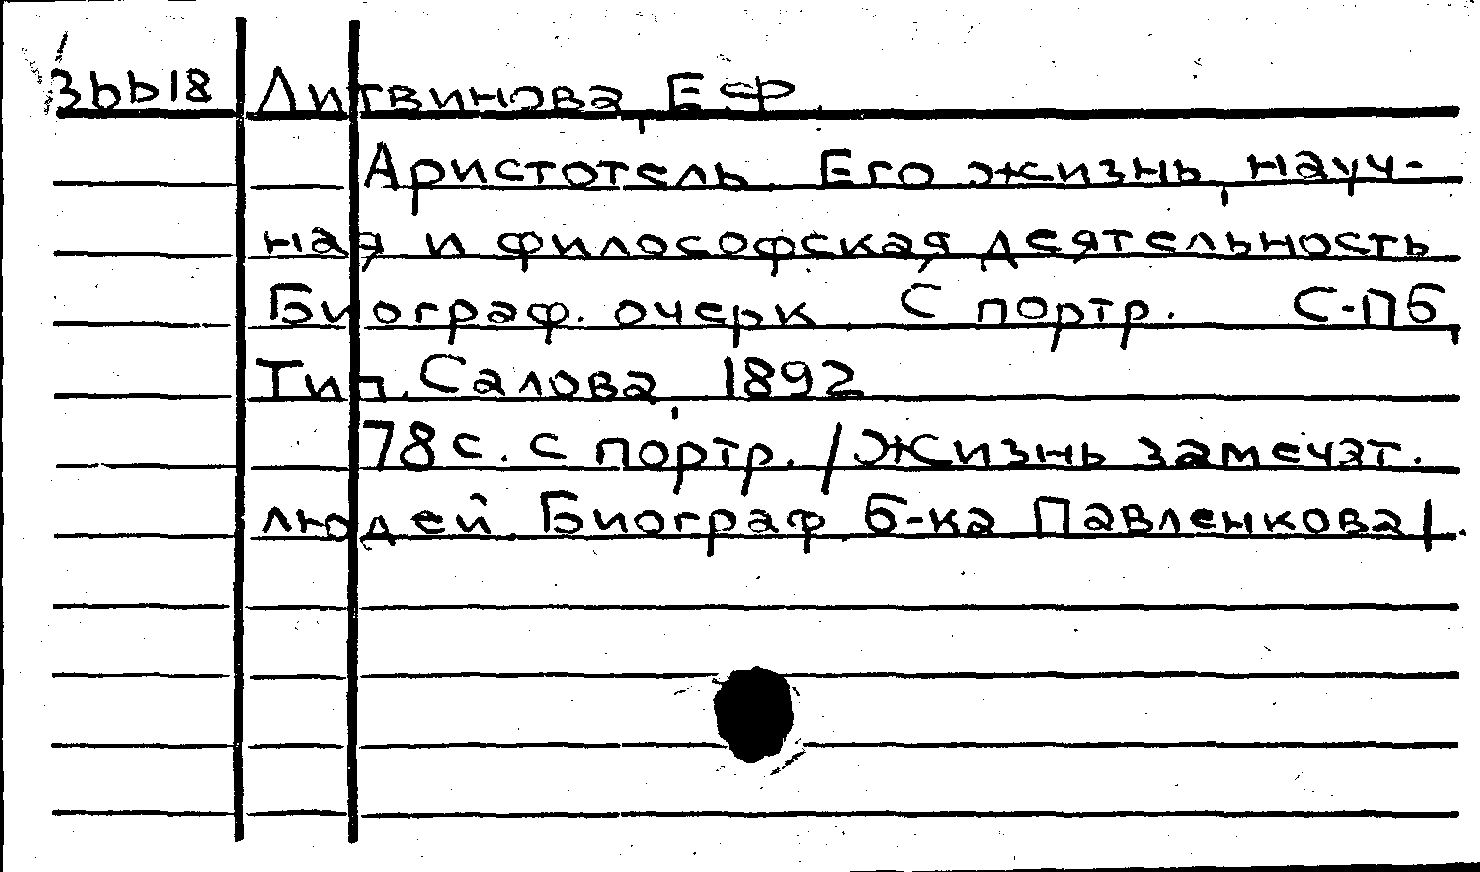 3bb18 Литвинова, Е Ф.
Аристотель. Его жизнь, науч-
ная и философская деятельность
Биограф. очерк. С портр. С-Пб,
Тип. Салова, 1892
78 с. с портр. /Жизнь замечат.
людей. Биограф. б-ка Павленкова/.